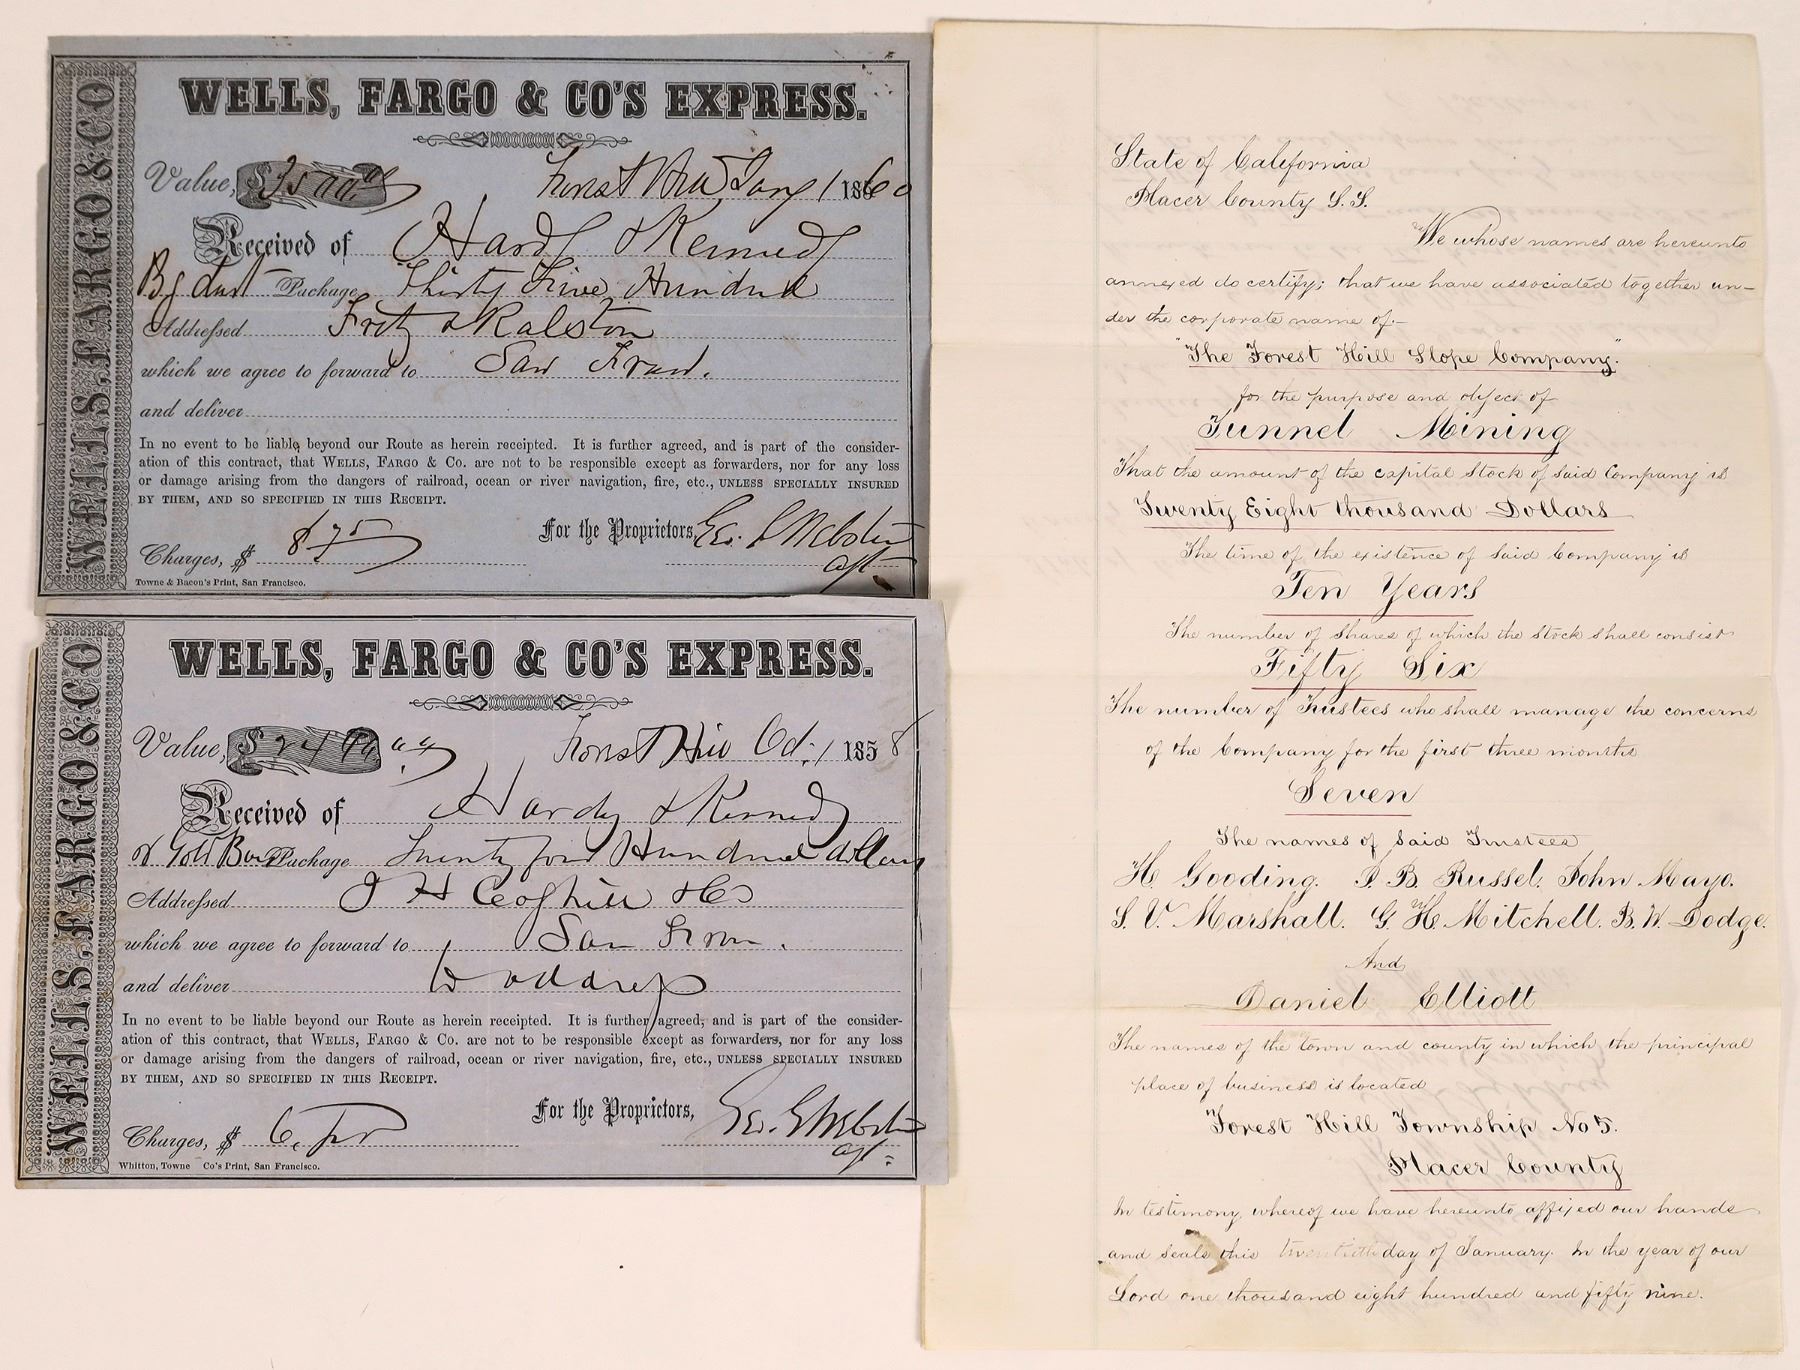 WELLS, FARGO & CO
WELLS, FARGO & CO'S EXPRESS.
Value, $3500.00 Forest Hill Jany 1 1860
Received of Hardy & Kennedy
Bg Dust Package Thirty Five Hundred
Addressed Fretz & Ralston
which we agree to forward to San Fran.
and deliver
In no event to be liable beyond our Route as herein receipted. It is further agreed, and is part of the consider-
ation of this contract, that WELLS, FARGO & CO. are not to be responsible except as forwarders, nor for any loss
or damage arising from the dangers of railroad, ocean or river navigation, fire, etc., UNLESS SPECIALLY INSURED
BY THEM, AND SO SPECIFIED IN THIS RECEIPT.
For the Proprietors, Geo. Webster
Charges, $ 8 75 agt
Towne & Bacon's Print, San Francisco.
WELLS, FARGO & CO
WELLS, FARGO & CO'S EXPRESS.
Value, $ 2400.00 Forest Hill Oct. 1 1858
Received of Hardy & Kennedy
Gold Bar Package Twenty four Hundred dollars
Addressed J H Coghill & Co
which we agree to forward to San Fran.
and deliver to address
In no event to be liable beyond our Route as herein receipted. It is further agreed, and is part of the consider-
ation of this contract, that WELLS, FARGO & CO. are not to be responsible except as forwarders, nor for any loss
or damage arising from the dangers of railroad, ocean or river navigation, fire, etc., UNLESS SPECIALLY INSURED
BY THEM, AND SO SPECIFIED IN THIS RECEIPT.
For the Proprietors, Geo. Webster
Charges, $ 6. agt
Whitton, Towne Co's Print, San Francisco.
State of California
Placer County S.S.
"We whose names are hereunto
annexed do certify; that we have associated together un-
der the corporate name of:-
"The Forest Hill Slope Company".
for the purpose and object of
Tunnel Mining
That the amount of the capital stock of said Company is
Twenty Eight thousand Dollars
The time of the existence of said Company is
Ten Years
The number of shares of which the stock shall consist
Fifty Six
The number of Trustees who shall manage the concerns
of the Company for the first three months
Seven
The names of said Trustees
H. Gooding. J. B. Russel. John Mayo.
S. V. Marshall. G. H. Mitchell. B. W. Dodge.
And
Daniel Elliott
The names of the town and county in which the principal
place of business is located
Forest Hill Township No 5.
Placer County
In testimony whereof we have hereunto affixed our hands
and seals this twentieth day of January. In the year of our
Lord one thousand eight hundred and fifty nine.